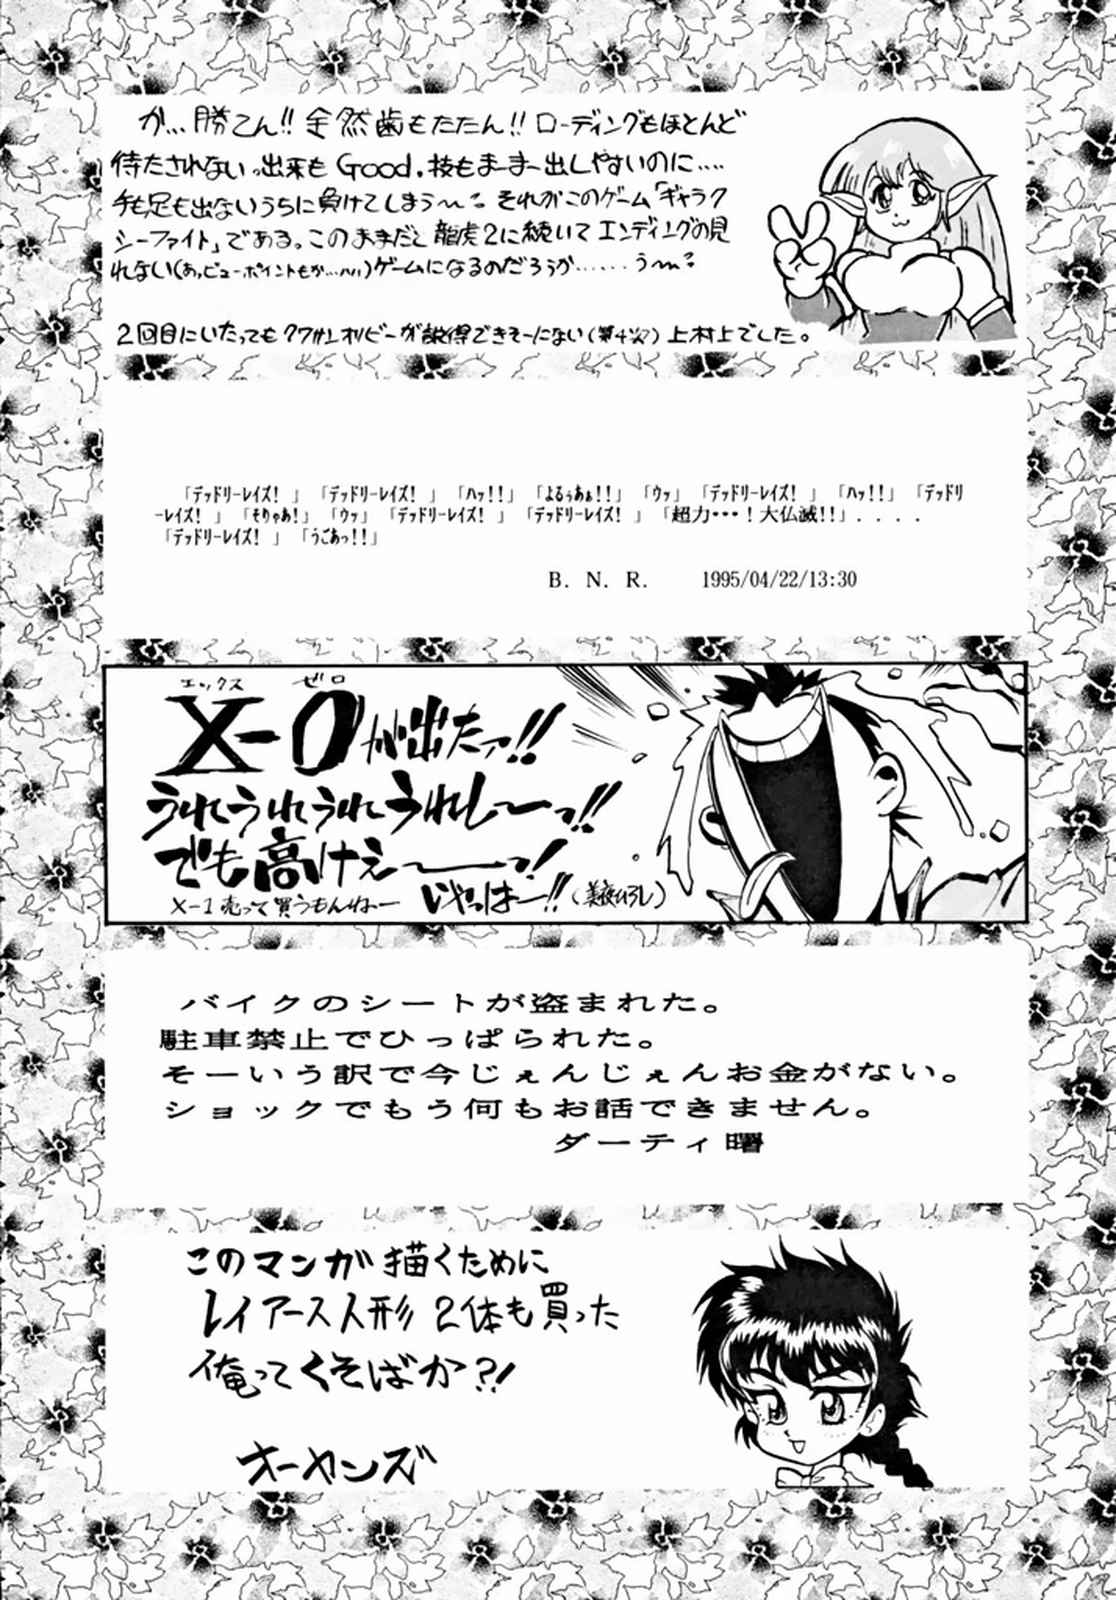 が…勝てん!!全然歯もたたん!!ローディングもほとんど
待たされないっ出来もGood.技もまーまー出しやすいのに……
手も足も出ないうちに負けてしまう〜。それがこのゲーム「ギャラク
シーファイト」である。このままだと龍虎2に続いてエンディングの見
れない(あっビューポイントもか…ハハ)ゲームになるのだろうか……う〜。
2回目にいたってもクワサンオリビーが説得できそーにない(第4次) 上村上でした。
「デッドリーレイズ! 」「デッドリーレイズ! 」「ハッ!!」「よるぅあぁ!!」「ウッ」「デッドリーレイズ! 」「ハッ!!」「デッドリ
ーレイズ! 」「そりゃあ! 」「ウッ」「デッドリーレイズ! 」「デッドリーレイズ! 」「超力・・・! 大仏滅!!」. . . .
「デッドリーレイズ! 」「うごあっ!!」
B. N. R. 1995/04/22/13:30
エックス ゼロ
X-0が出たァ!!
うれうれうれうれし〜っ!!
でも高けぇ〜っ!
X-1売って買うもんねー いやっはー!!(美夜ひろし)
バイクのシートが盗まれた。
駐車禁止でひっぱられた。
そーいう訳で今じぇんじぇんお金がない。
ショックでもう何もお話できません。
ダーティ曙
このマンガ描くために
レイアース人形2体も買った
俺ってくそばか?!
オーヤンズ